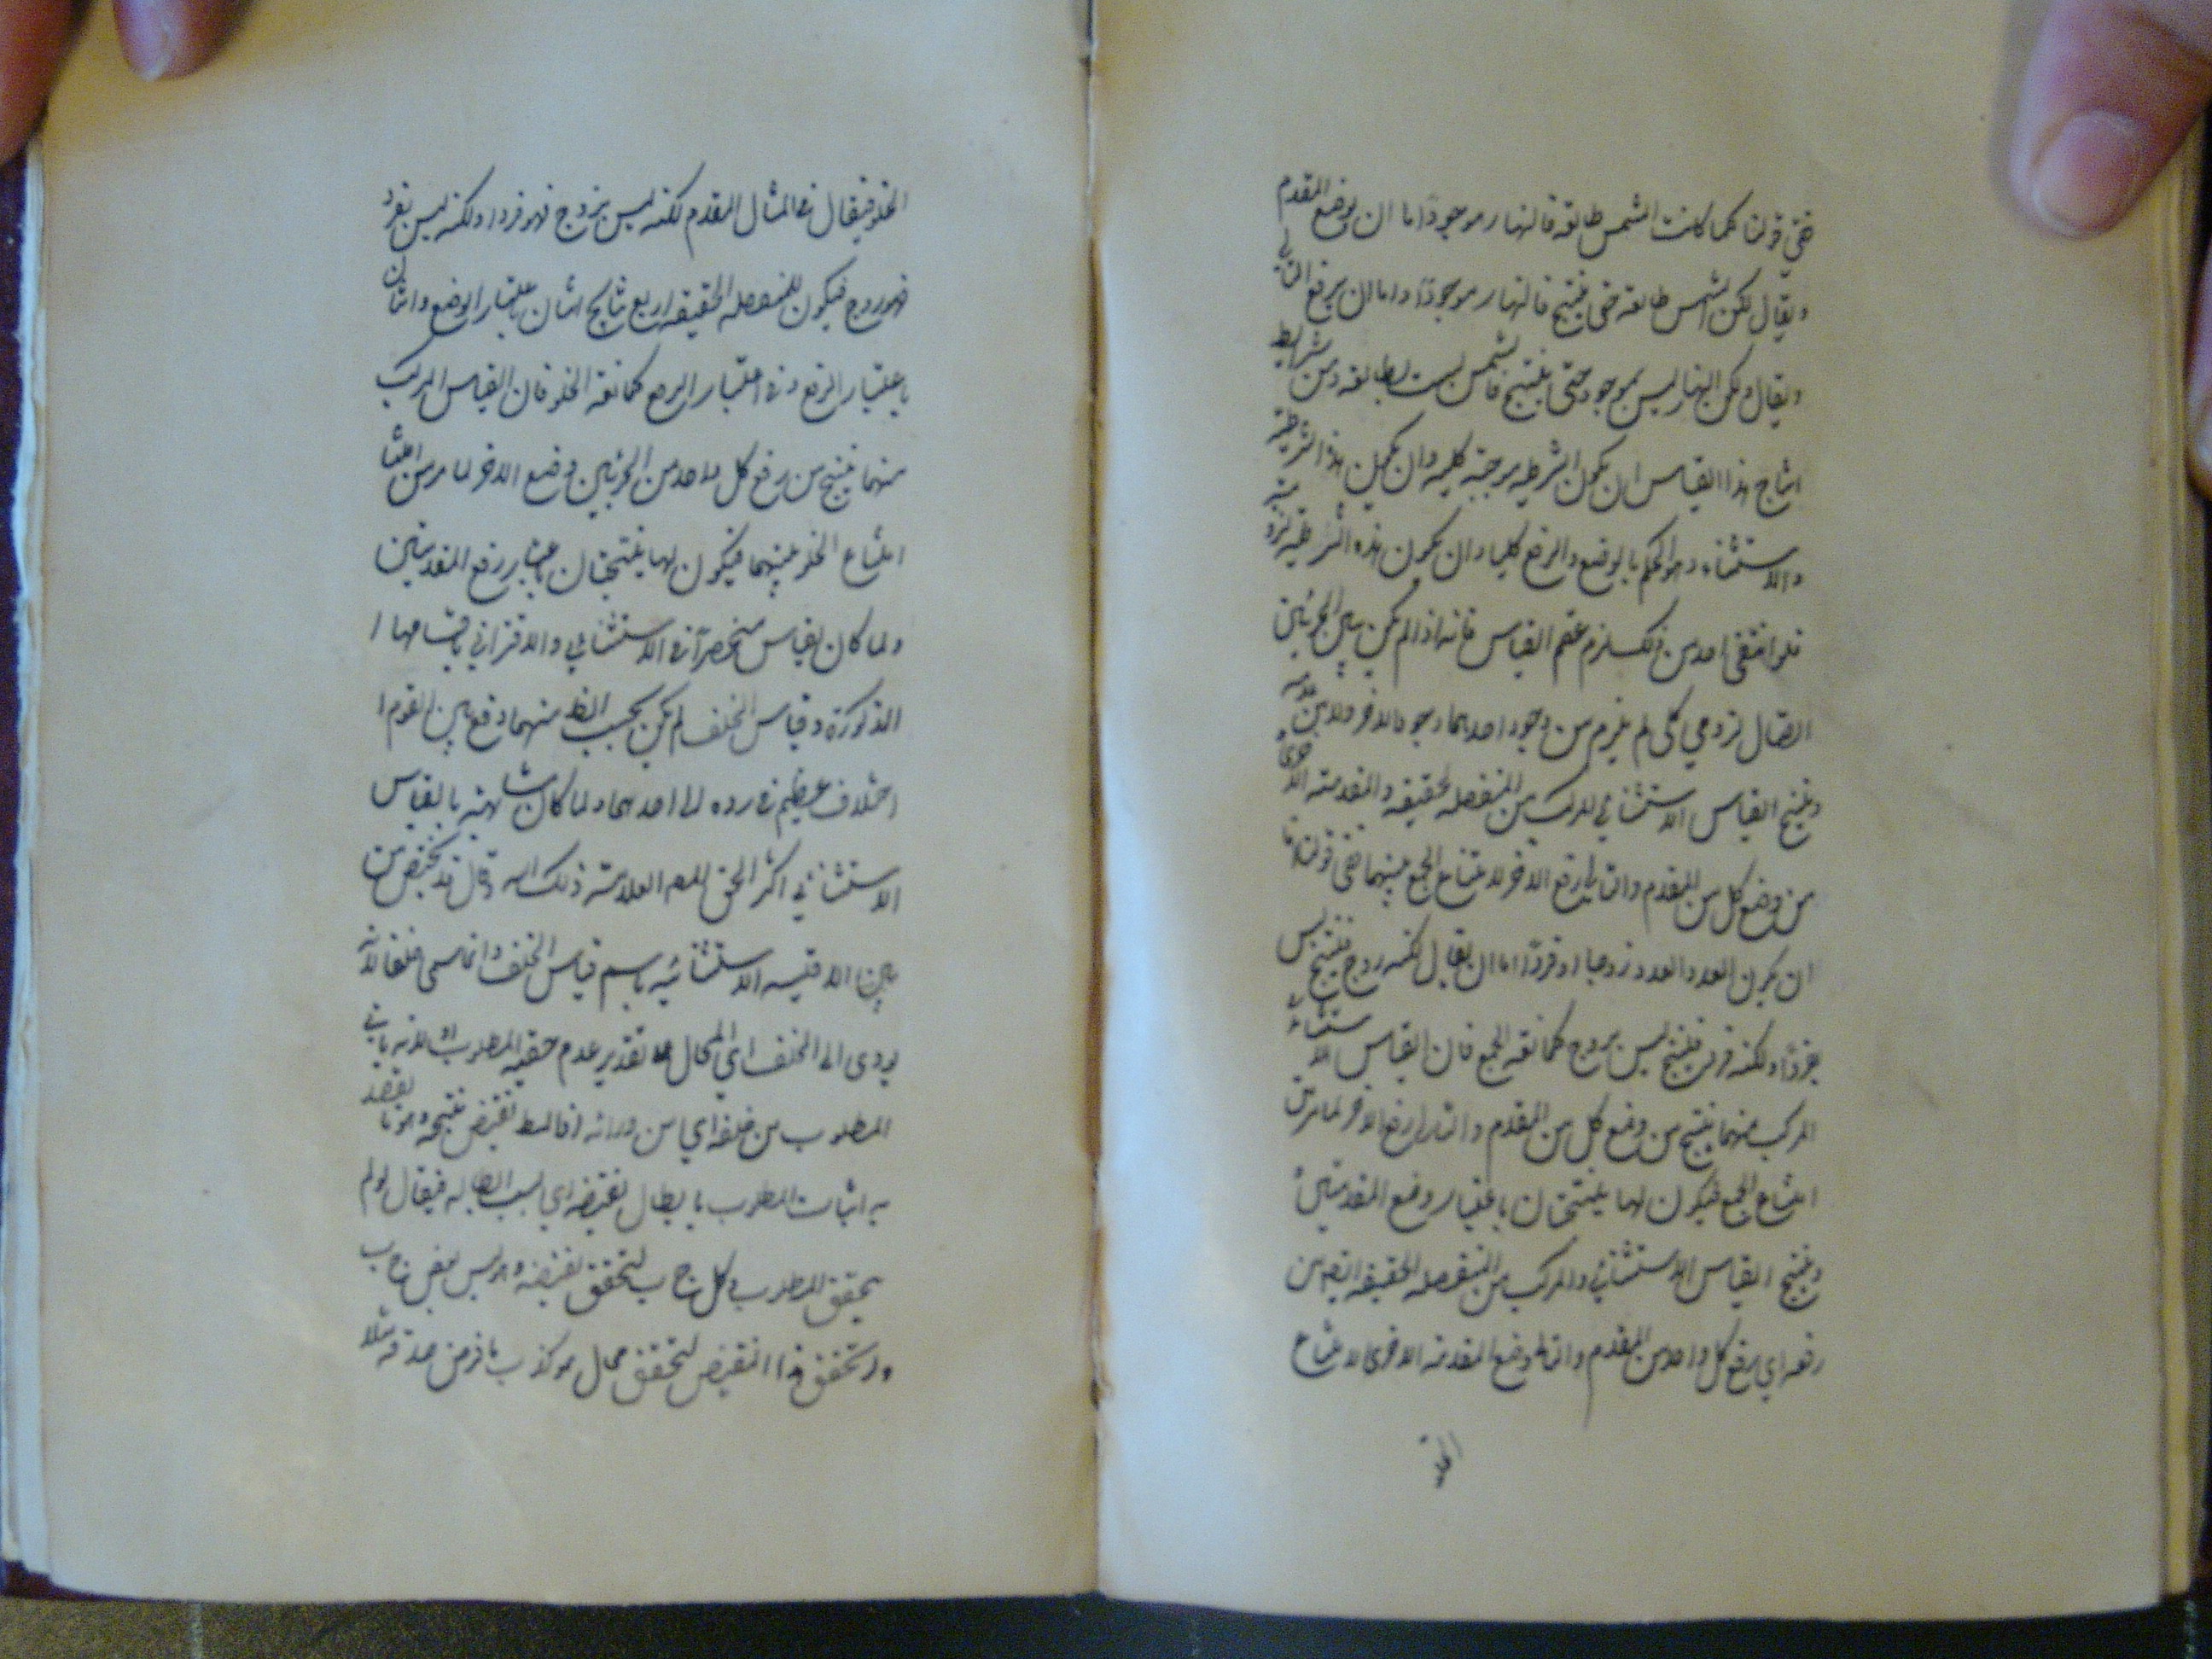 ففي قولنا كلما كانت الشمس طالعة فالنهار موجودا اما ان يوضع المقدم
ويقال لكن الشمس طالعة حتى ينتج فالنهار موجودا واما ان يرفع التالي
ويقال ولكن النهار ليس بموجود حتى ينتج فالشمس ليست بطالعة ومن شرايط
انتاج هذا القياس ان يكون الشرطيه موجبة كليه وان يكون هذا الشرطية
والاستثناء وهو الحكم بالوضع والرفع كليا وان يكون هذه الشرطيه لزومية
فلو انتفى احد من ذلك لزم عقم القياس فانه اذا لم يكن بين الجزئين
اتصال لزومي كلى لم يلزم من وجود احدهما وجود الاخر ولا من عدمه
وينتج القياس الاستثنائي المركب من المنفصله الحقيقيه والمقدمة الاخرى
من وضع كل من المقدم والتالي رفع الاخر لامتناع الجمع بينهما ففي قولنا
ان يكون العدد العدد زوجا او فردا اما ان يقال لكنه زوج فينتج ليس
بفرد او لكنه فرد فينتج ليس بزوج كمانعة الجمع فان القياس الاستثنائى
المركب منهما ينتج من وضع كل من المقدم والتالي رفع الاخر لما مر من
امتناع الجمع فيكون لها ينتجتان باعتبار وضع المقدمتين
وينتج القياس الاستثنائي والمركب من المنفصله الحقيقيه ايضا من
رفعه اي رفع كل واحد من المقدم والتالي وضع المقدمة الاخرى لامتناع
الخلو
الخلو فيقال في المثال المقدم لكنه ليس بزوج فهو فرد او لكنه ليس بفرد
فهو زوج فيكون للمنفصله الحقيقيه اربع نتايج اثنان باعتبار الوضع واثنان
باعتبار الرفع وفي اعتبار الرفع كمانعة الخلو فان القياس المركب
منهما ينتج من رفع كل واحد من الجزئين وضع الاخر لما مر من امتناع
امتناع الخلو بينهما فيكون لها ينتجتان باعتبار رفع المقدمتين
ولما كان القياس منحصرا في الاستثنائي والاقتراني باقسامها ا
المذكورة وقياس الخلف لم يكن بحسب الظ منهما وقع بين القوم ا
اختلاف عظيم في رده الى احدهما ولما كان مشابهته بالقياس
الاستثنائي اكثر الحق المص العلامة ذلك به وقال قد يختص من
بين الاقيسه الاستثنائيه باسم قياس الخلف وانما سمى خلفا لانه
يودى الى الخلف اي المحال على تقدير عدم حقيه المطلوب او لانه ياتي
المطلوب من خلفه اي من ورائه نقيض وهو ما يقصد
به اثبات المطلوب بابطال نقيضه اي بسبب ابطاله فيقال لو لم
يتحقق المطلوب وكل ج ب لتحقق نقيضه وهو ليس بعض ج ب
ولو تحقق هذا النقيض لتحقق محال هو كذب ما فرض صدقه مثلا